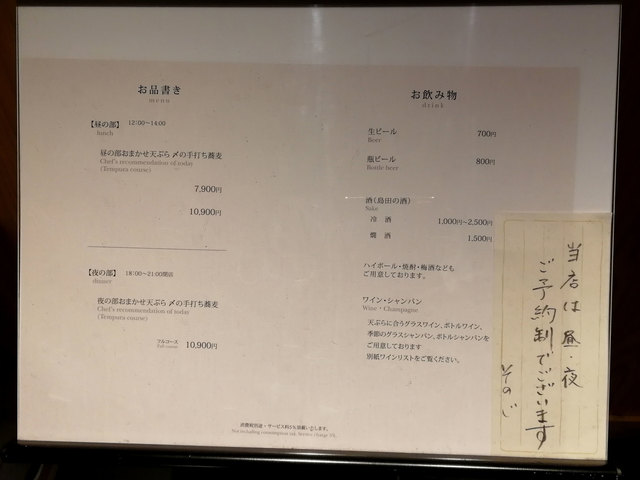 お品書き
menu
【昼の部】 12:00〜14:00
lunch
昼の部おまかせ天ぷら〆の手打ち蕎麦
Chef's recommendation of today
(Tempura course)
7,900円
10,900円
【夜の部】 18:00〜21:00閉店
dinner
夜の部おまかせ天ぷら〆の手打ち蕎麦
Chef's recommendation of today
(Tempura course)
フルコース 10,900円
Full course
お飲み物
drink
生ビール 700円
Beer
瓶ビール 800円
Bottle beer
酒(島田の酒)
Sake
冷 酒 1,000円〜2,500円
燗 酒 1,500円
ハイボール・焼酎・梅酒なども
ご用意しております。
ワイン・シャンパン
Wine・Champagne
天ぷらに合うグラスワイン、ボトルワイン、
季節のグラスシャンパン、ボトルシャンパンを
ご用意しております
別紙ワインリストをご覧ください。
消費税別途・サービス料5%頂戴いたします。
Not including consumption tax. Service charge 5%.
当店は昼・夜
ご予約制でございます